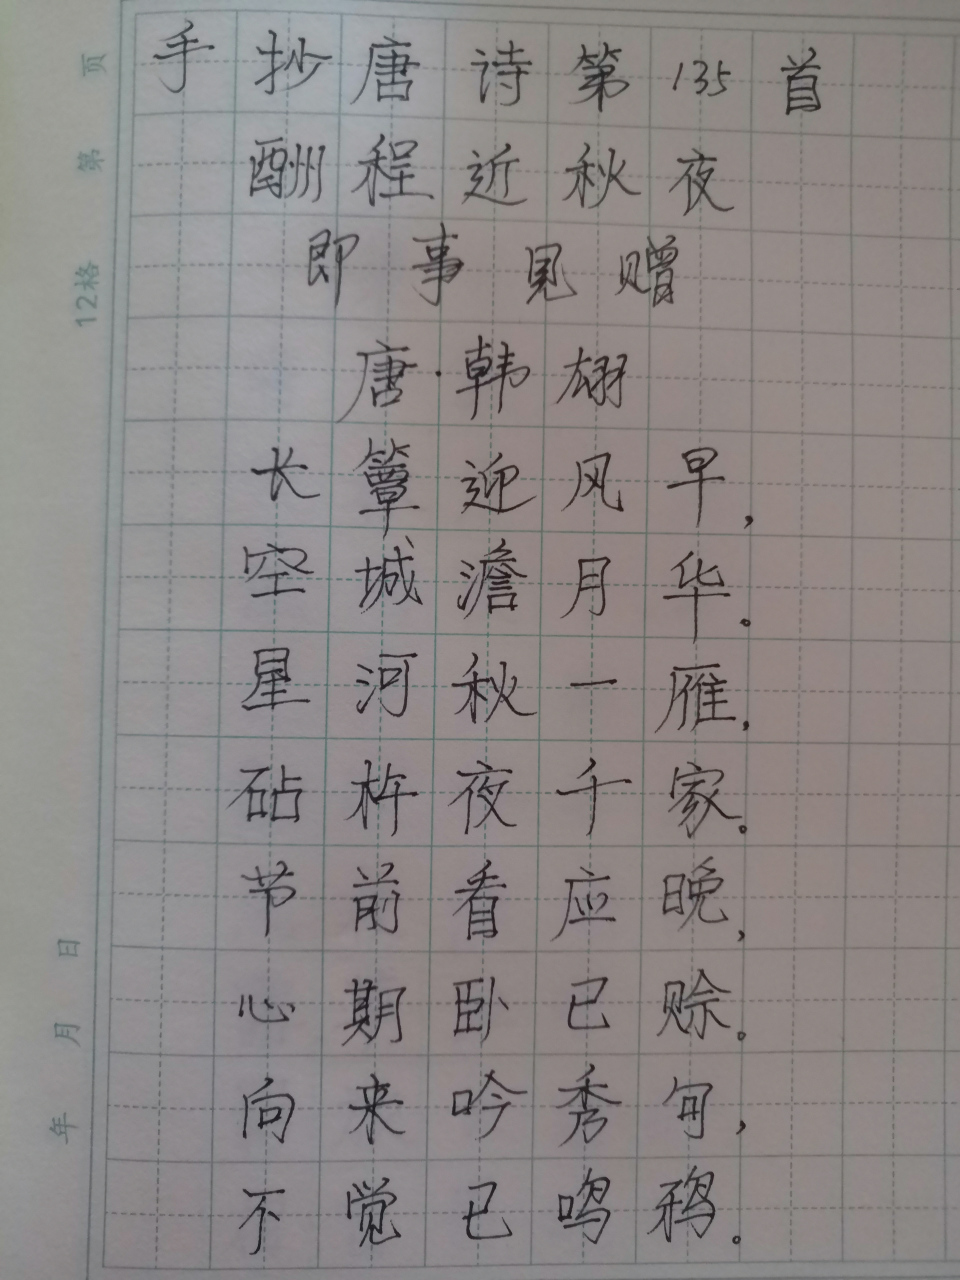 手抄唐诗第135首
酬程近秋夜
即事见赠
唐·韩翃
长簟迎风早，
空城澹月华。
星河秋一雁，
砧杵夜千家。
节前看应晚，
心期卧已赊。
向来吟秀句，
不觉已鸣鸦。
第 页
12格
年 月 日